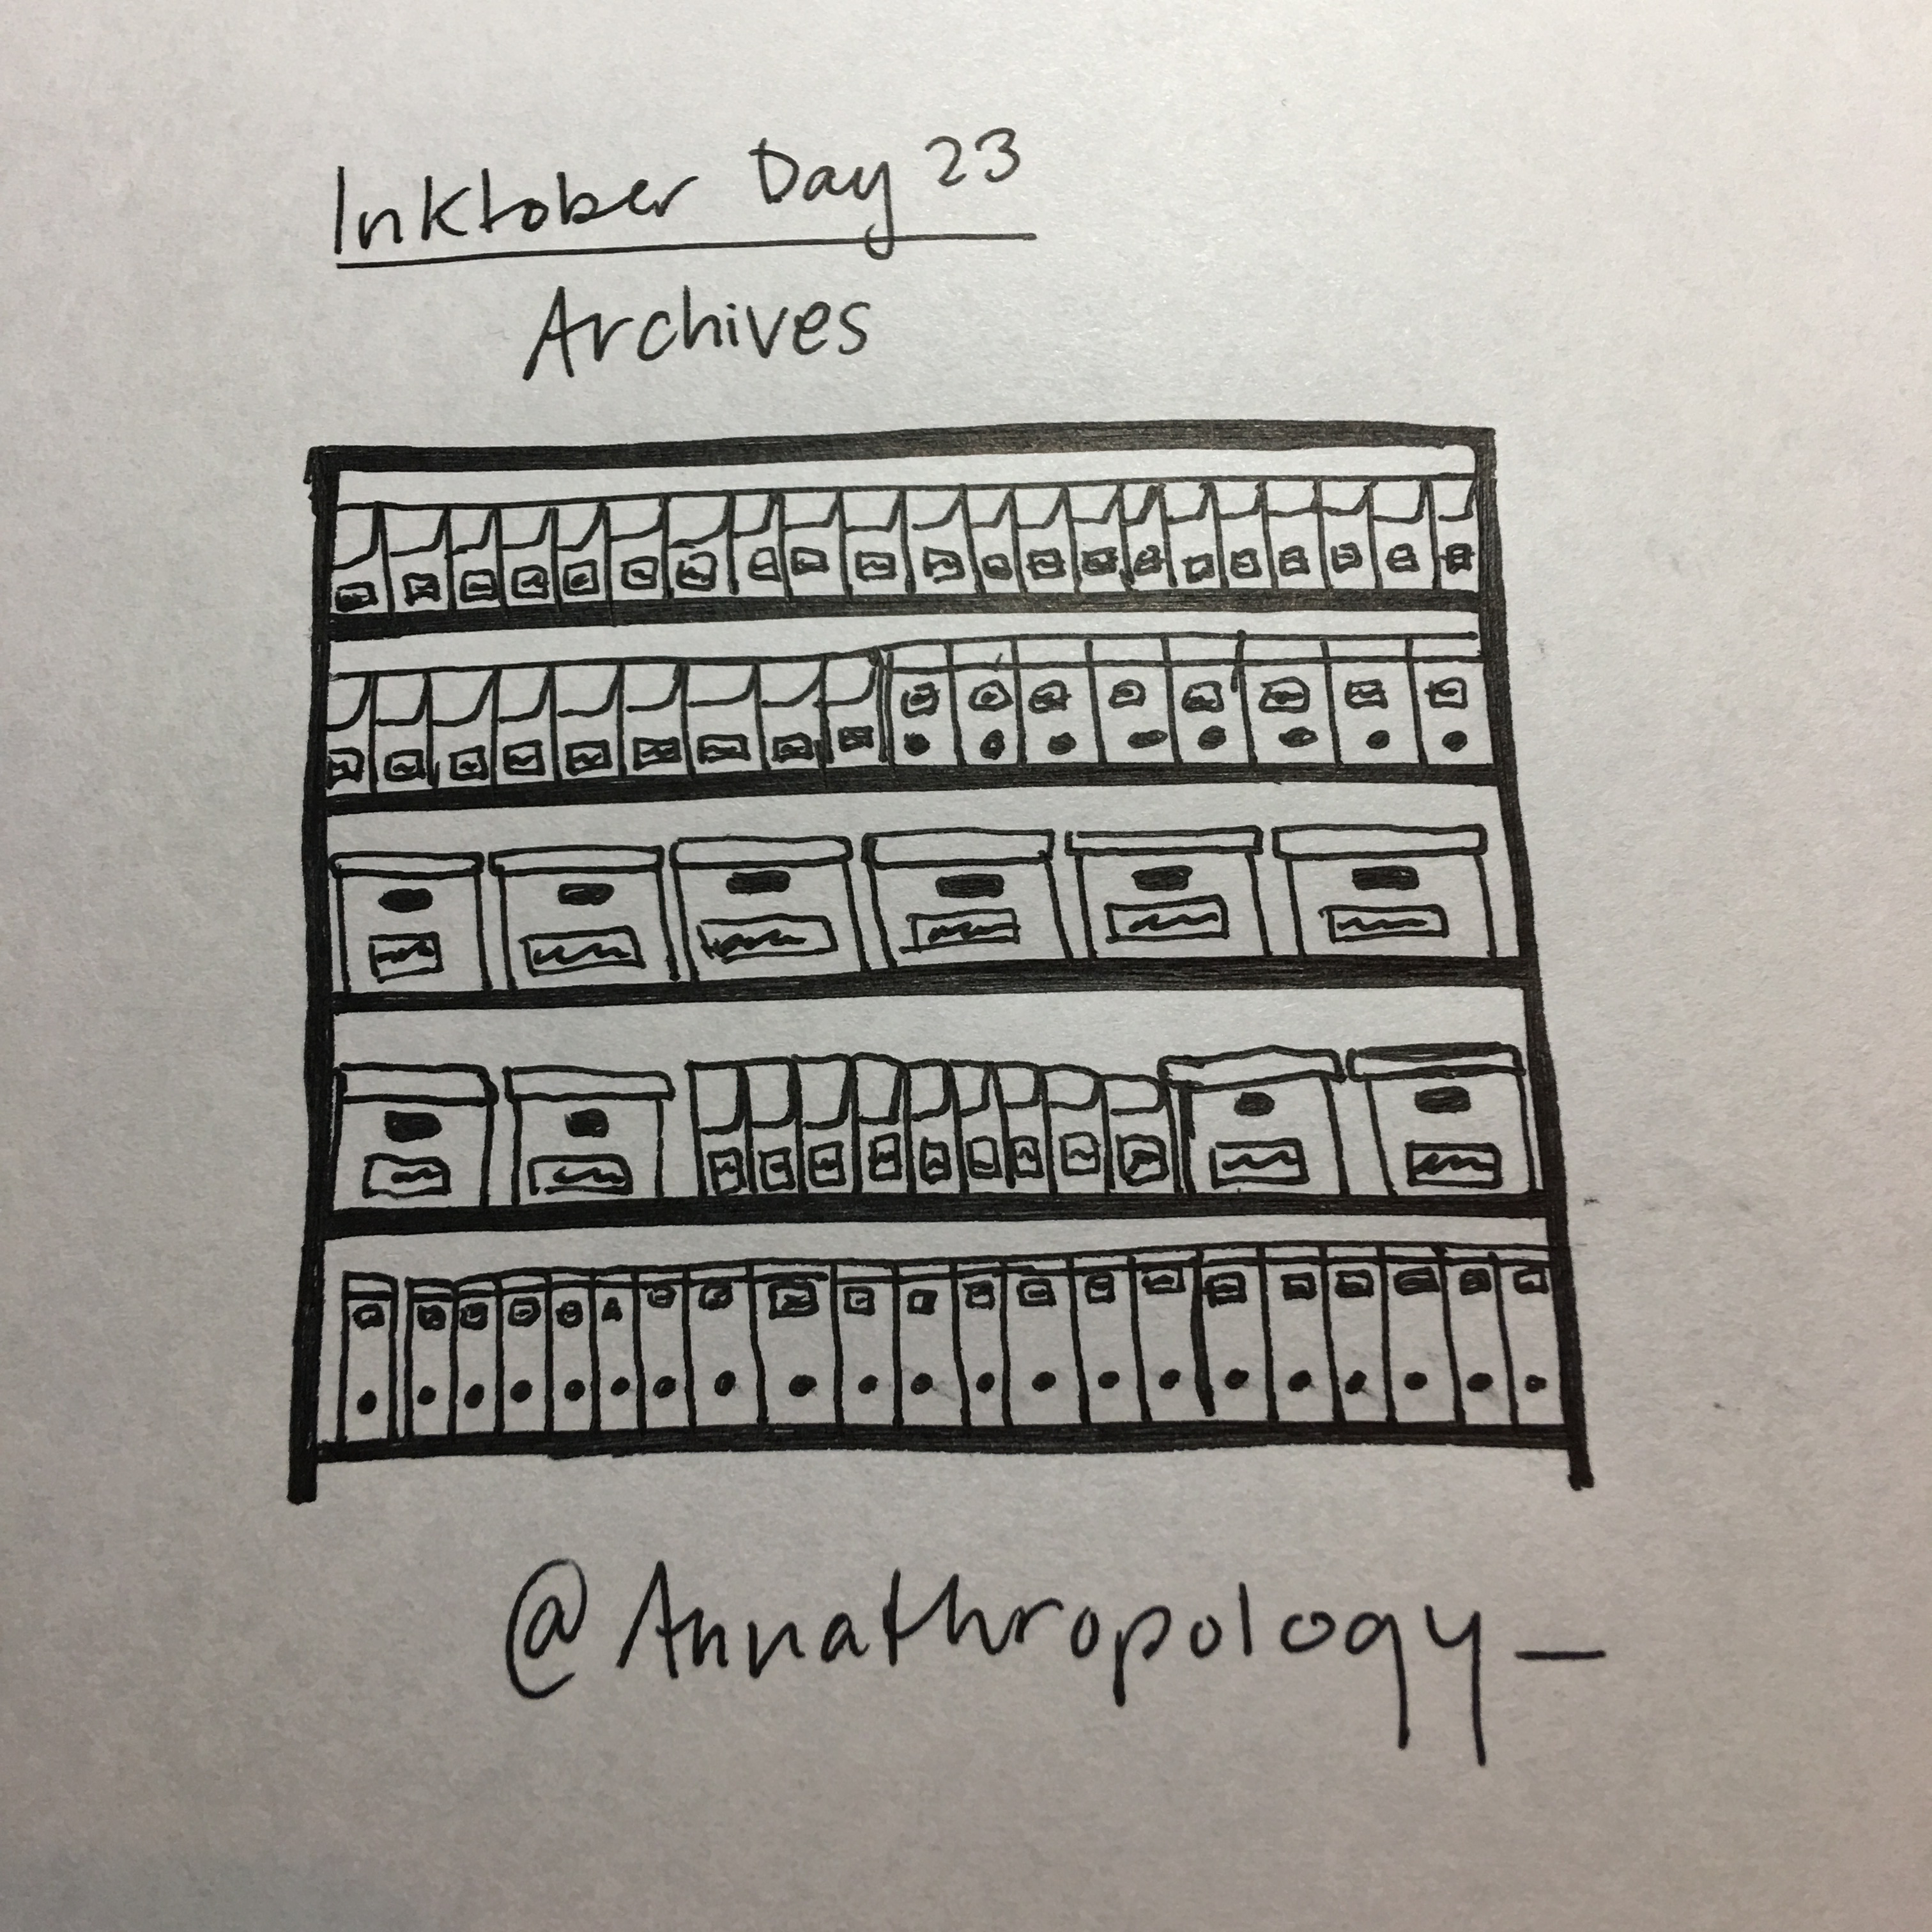 Inktober Day 23
Archives
@Annathropology_